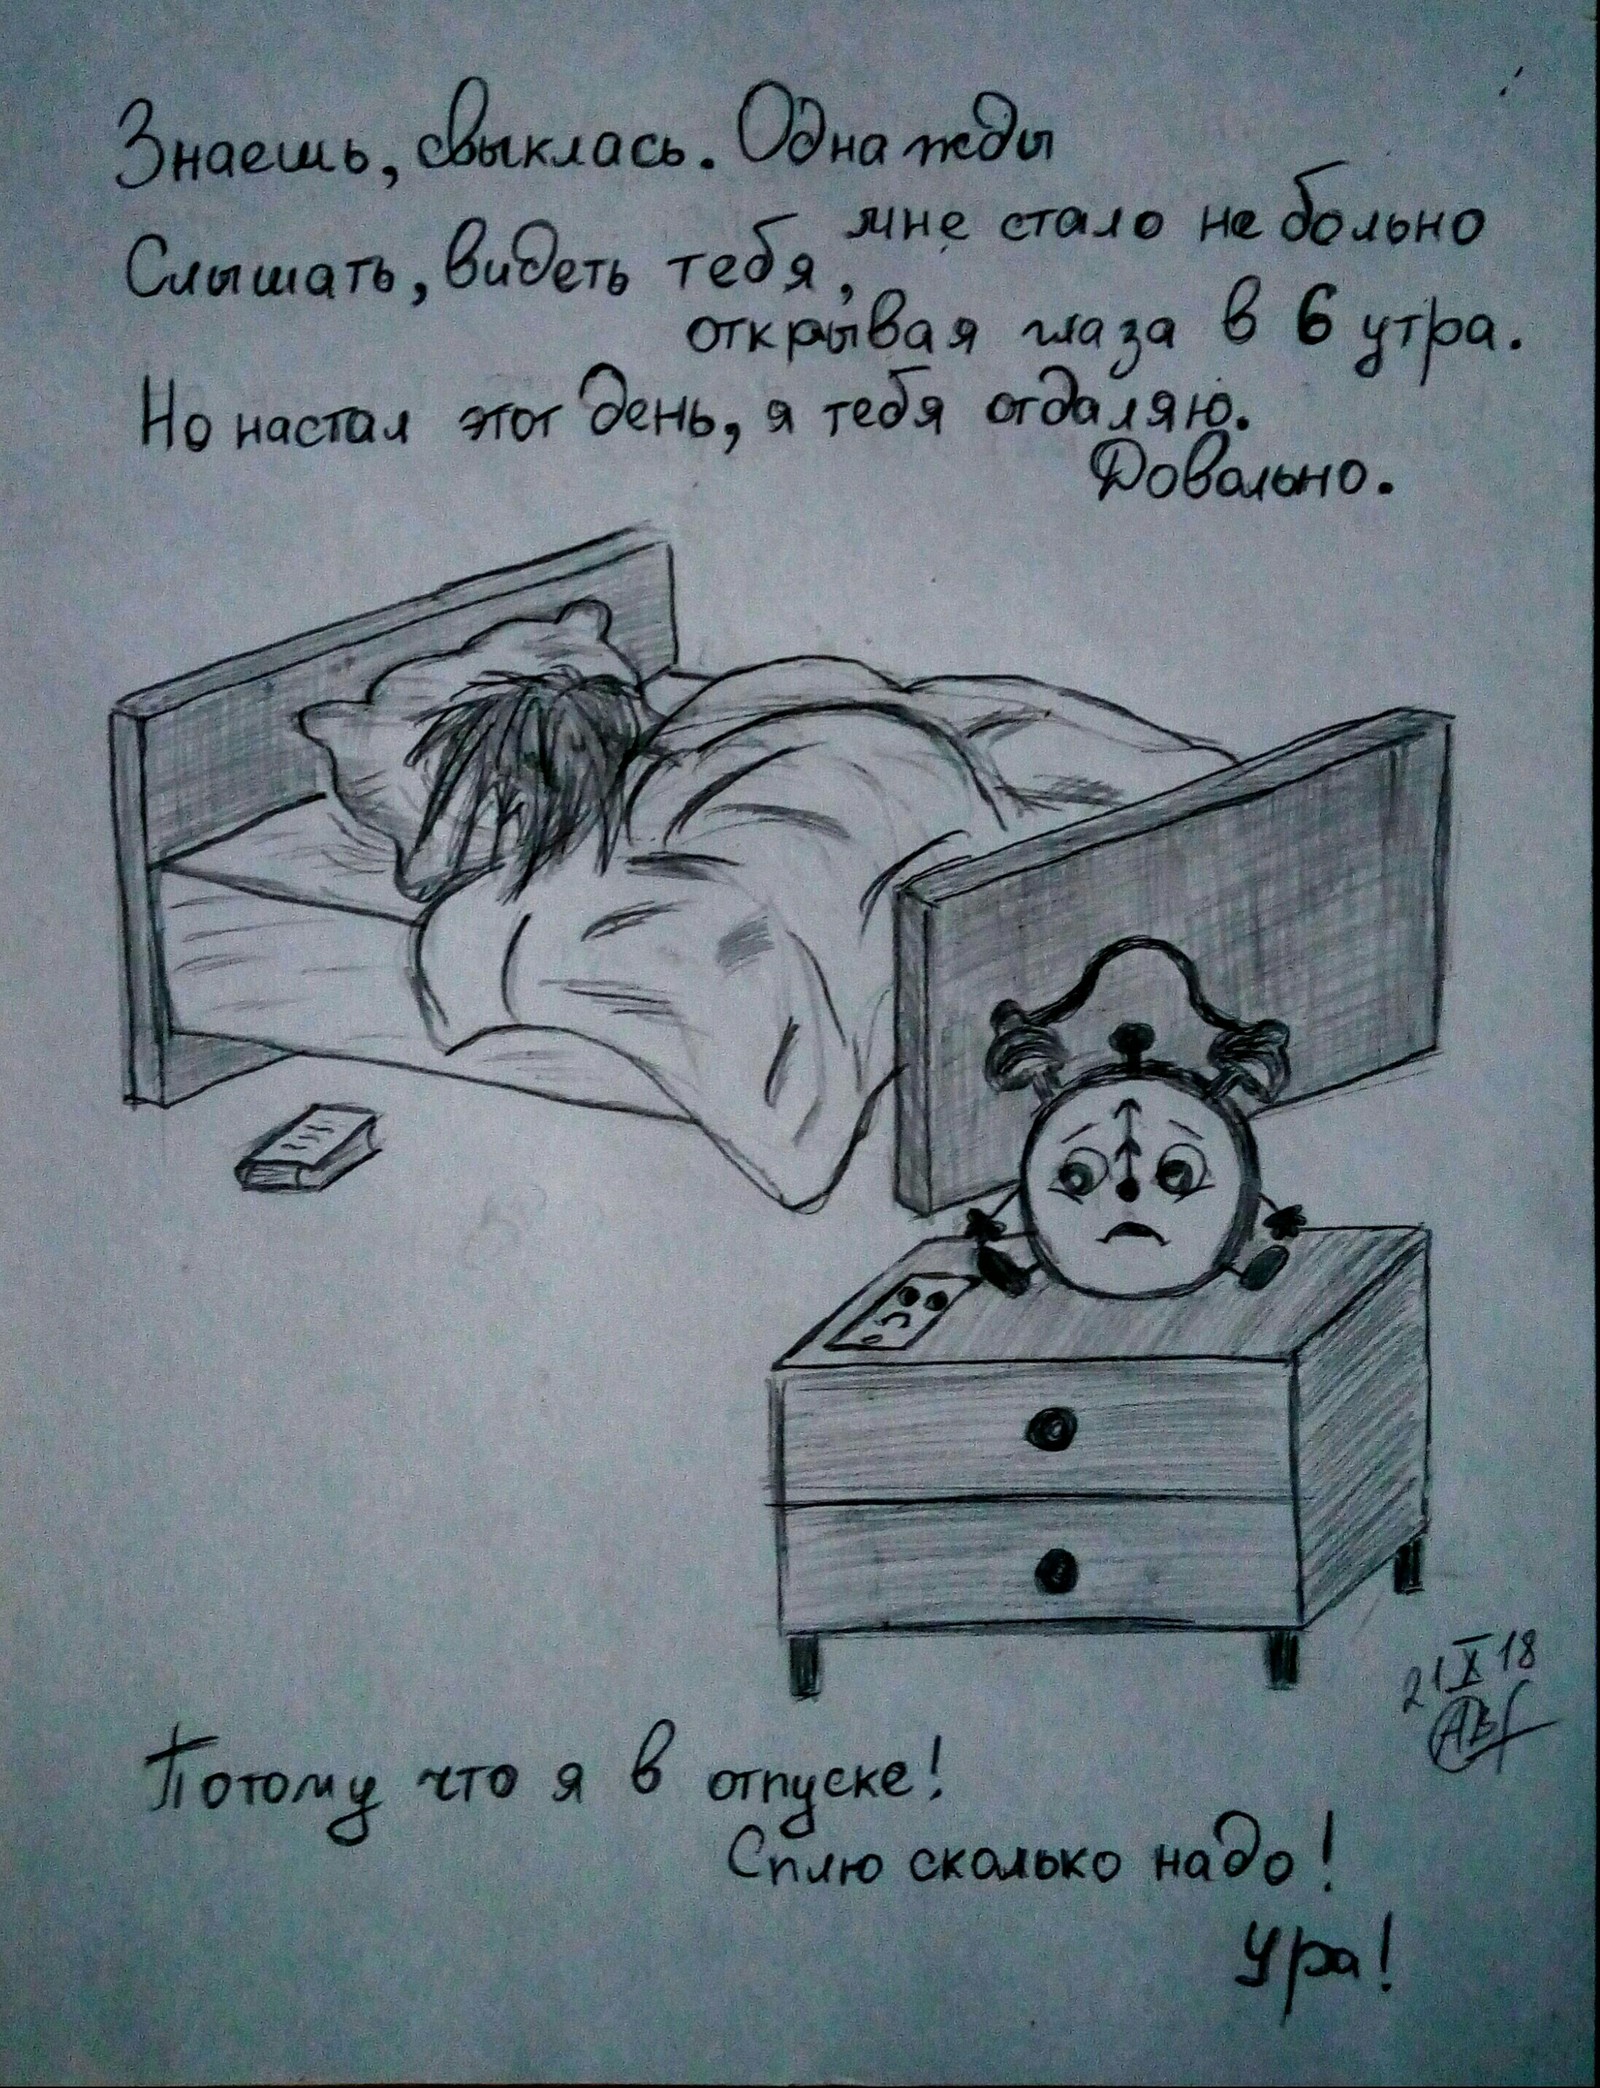 Знаешь, свыклась. Однажды
мне стало не больно
Слышать, видеть тебя,
открывая глаза в 6 утра.
Но настал этот день, я тебя отдаляю.
Довольно.
21 X 18
Потому что я в отпуске!
Сплю сколько надо!
Ура!